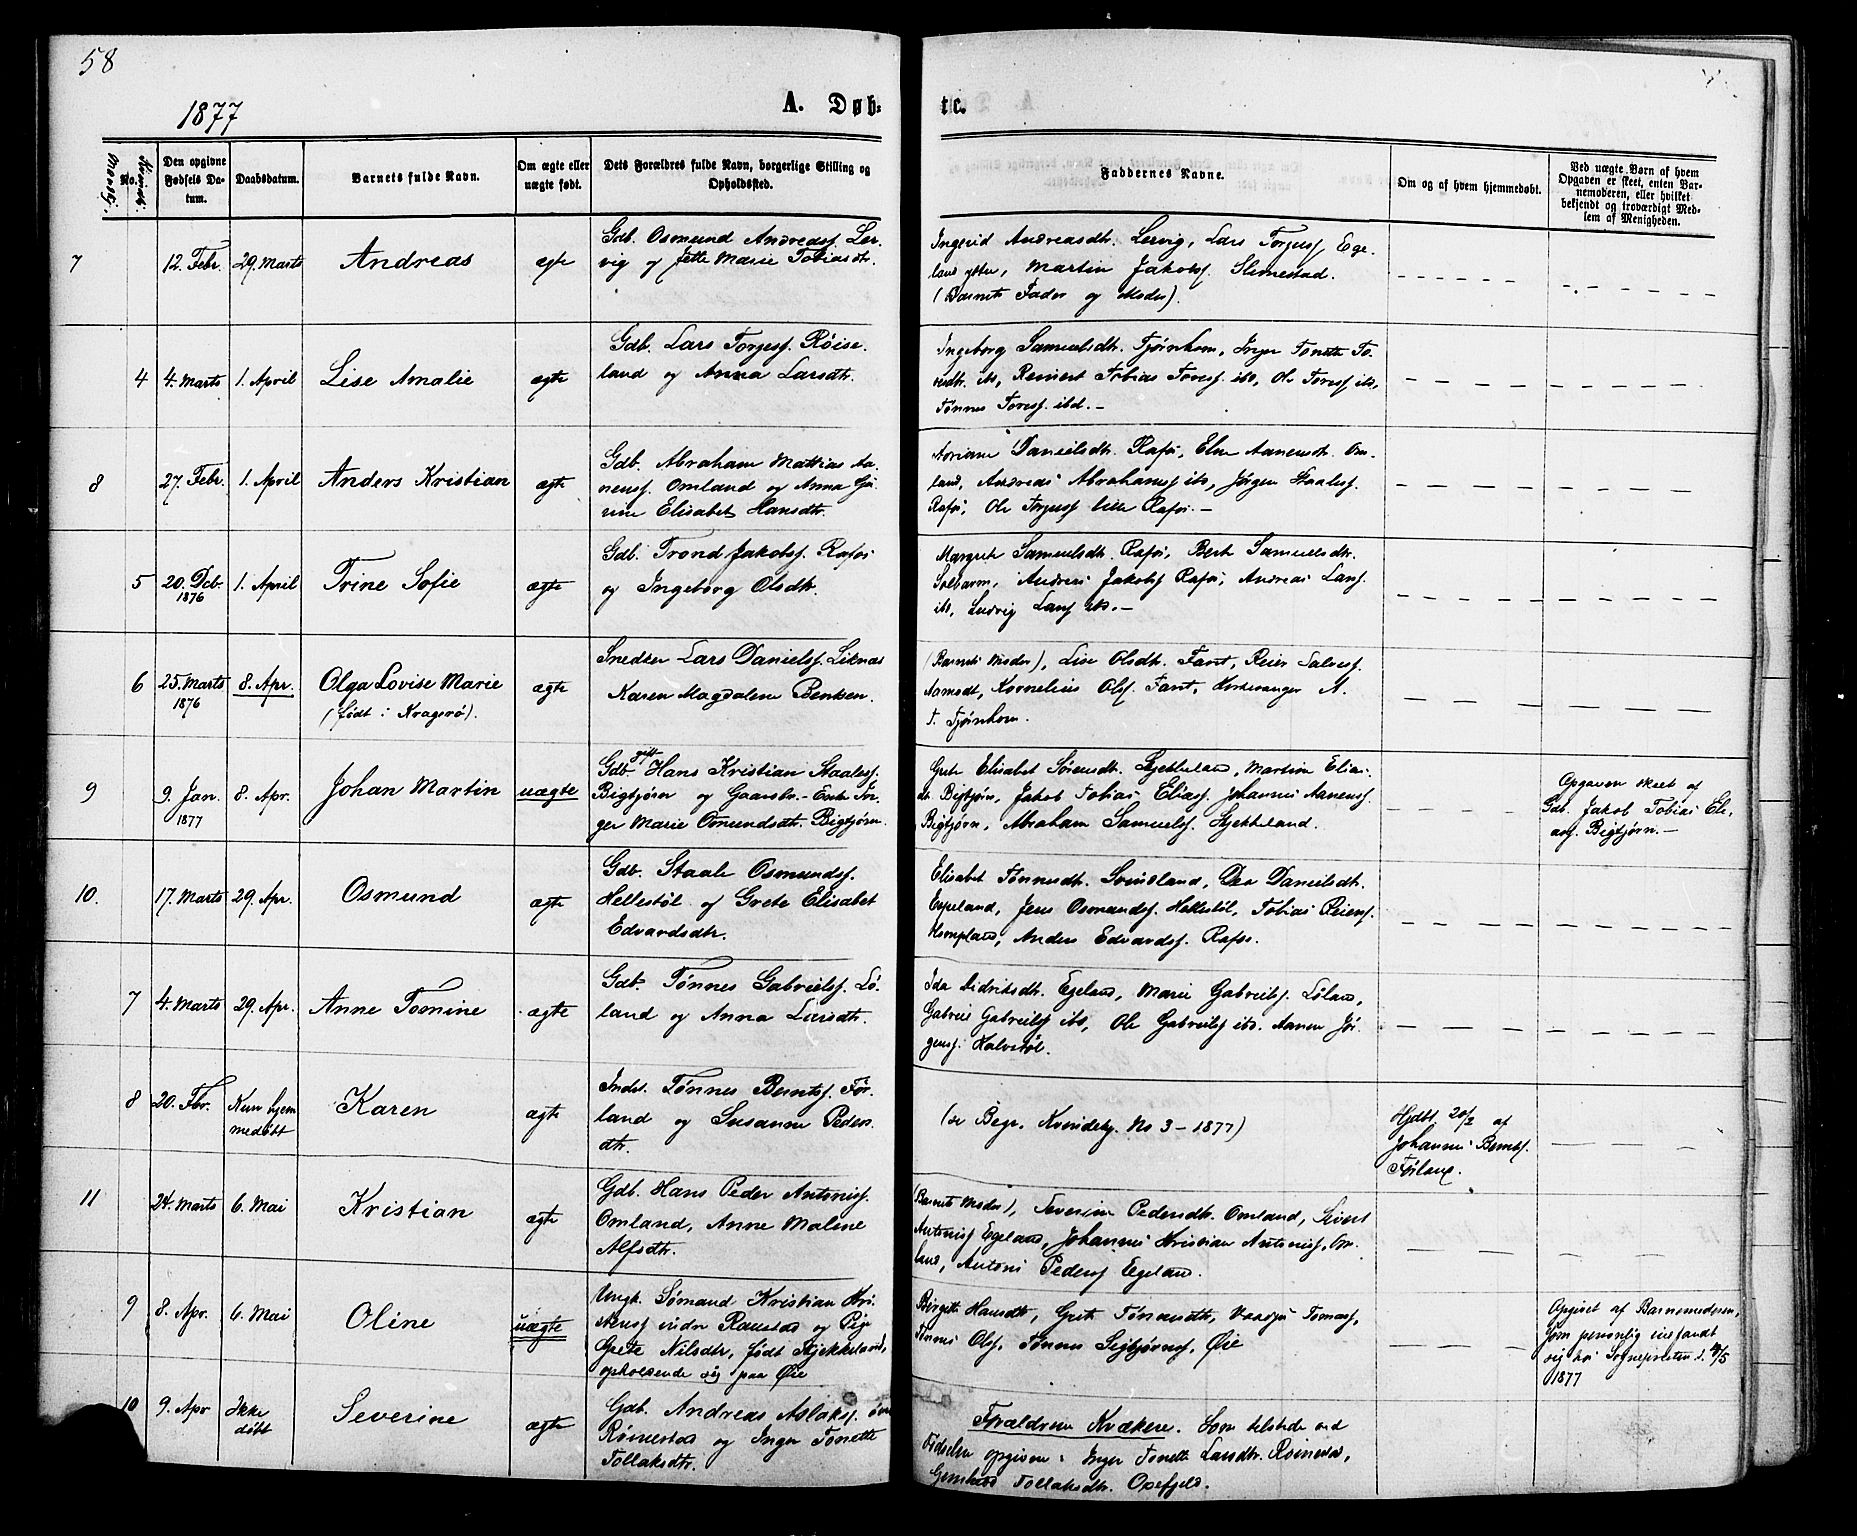 58
1877
A. Døb-
te.
Mandkj.
No.
Kvindek.
Den opgivne Fødsels Datum.
Daabsdatum.
Barnets fulde Navn.
Om ægte eller uægte født.
Dets Forældres fulde Navn, borgerlige Stilling og Opholdssted.
Faddernes Navne.
Om og af hvem hjemmedøbt.
Ved uægte Børn af hvem Opgaven er skeet, enten Barnemoderen, eller hvilket bekjendt og troværdigt Medlem af Menigheden.
7
12. Febr.
29. Marts
Andreas
ægte
Gdb. Osmund Andreasf. Ler-
vig og Jette Marie Tobiasdtr.
Ingerid Andreasdtr. Lervig, Lars Torjusf. Ege-
land ytter, Martin Jakobsf. Slimestad.
(Barnets Fader og Moder).
4
4. Marts
1. April
Lise Amalie
ægte
Gdb. Lars Torjesf. Röise-
land og Anna Larsdtr.
Ingeborg Samuelsdtr. Fjørnhom, Inger Tonette To-
resdtr. ibd, Reinert Tobias Toresf. ibd, Ole Toresf ibd,
Tønnes Toresf. ibd.-
8
27. Febr.
1. April
Anders Kristian
ægte
Gdb. Abraham Mattias Aa-
nensf. Omland og Anna Gu-
rine Elisabet Hansdtr.
Adriane Danielsdtr. Rafos, Eline Aanensdtr. Om-
land, Andreas Abrahamsf ibd, Jørgen Staalesf.
Rafos, Ole Torjusf lille Rafos.-
5
20. Dcb.
1876
1. April
Trine Sofie
ægte
Gdb. Trond Jakobsf. Rafos
og Ingeborg Olsdtr.
Margrete Samuelsdtr. Rafos, Berte Samuelsdtr.
Andreas Jakobsf Rafos, Andreas Larsf.
ibd, Ludvig Larsf ibd.-
6
25. Marts
1876
8. Apr.
Olga Lovise Marie
(født i Kragerö).
ægte
Snedker Lars Danielsf. Liknæs
Karen Magdalene Bentsen.
(Barnets Moder), Lise Olsdtr. Fant, Reier Salvesf.
Aamodt, Kornelius Olsf. Fant, Kirkesanger A.
T. Fjørnhom.
9
9. Jan.
1877
8. Apr.
Johan Martin
uægte
Gdb. gift Hans Kristian Staalesf.
Bigtjørn og Gaardbr.-Enke In-
ger Marie Osmundsdtr. Bigtjørn.
Grete Elisabet Sörensdtr. Stjekkeland, Martine Elias-
dtr. Bigtjørn, Jakob Tobias Eliasf. Johannes Aanensf.
Bigtjørn, Abraham Samuelsf. Stjekkeland.
Opgaven skeet af
Gdb. Jakob Tobias Eli-
asf. Bigtjørn.-
10.
17. Marts
29. Apr.
Osmund
ægte
Gdb. Staale Osmundsf.
Hellestöl og Grete Elisabet
Edvardsdtr.
Elisabet Tönnesdtr. Svindland, Dea Danielsdtr.
Egeland, Jens Osmundsf. Hellestöl, Tobias Reiersf.
Hompland, Anders Edvardsf. Rafos.
7
4. Marts
29. Apr.
Anne Tomine
ægte
Gdb. Tönnes Gabrielsf. Lö-
land og Anna Larsdtr.
Ida Didriksdtr. Egeland, Marie Gabrielsf. Löland,
Gabriel Gabrielsf ibd, Ole Gabrielsf ibd. Aanen Jör-
gensf. Halvestöl.
8
20. Fbr.
Kun hjem
medöbt
Karen
ægte
Inds. Tönnes Berntsf. Før-
land og Susanne Peders-
dtr.
(se Begr. Kvindekj. No 3 - 1877)
Hjdbt 20/2 af
Johannes Berntsf.
Förland.
11
24. Marts
6. Mai
Kristian
ægte
Gdb. Hans Peder Antonisf.
Omland, Anne Maline
Alfsdtr.
(Barnets Moder), Severine Pedersdtr. Omland, Sivert
Antonisf Egeland, Johannes Kristian Antonisf, Om-
land, Antoni Pedersf Egeland.
9
8. Apr.
6. Mai
Oline
uægte
Ungk. Sömand Kristian Kri-
stensf indre Rausstad og Pige
Grete Nilsdtr, født Stjekkeland,
opholdende sig paa Öie
Birgitte Hansdtr, Grete Tönnesdtr, Tomasf,
Tönnes Olsf, Tönnes Seibjörnsf, Öie
Opgivet af Barnemoderen,
som personlig indfandt
sig hos Sognepresten d. 4/5
1877
10
9. Apr
Ikke
döbt
Severine
ægte
Gdb. Andreas Aslaksf. övre
Römestad og Inger Tonette
Tollaksdtr.
Forældrene Kvækere. Som tilstede ved
Födselen opgives: Inger Tonette Larsdtr. Römestad,
Gunhild Tollaksdtr. Oxefjeld.